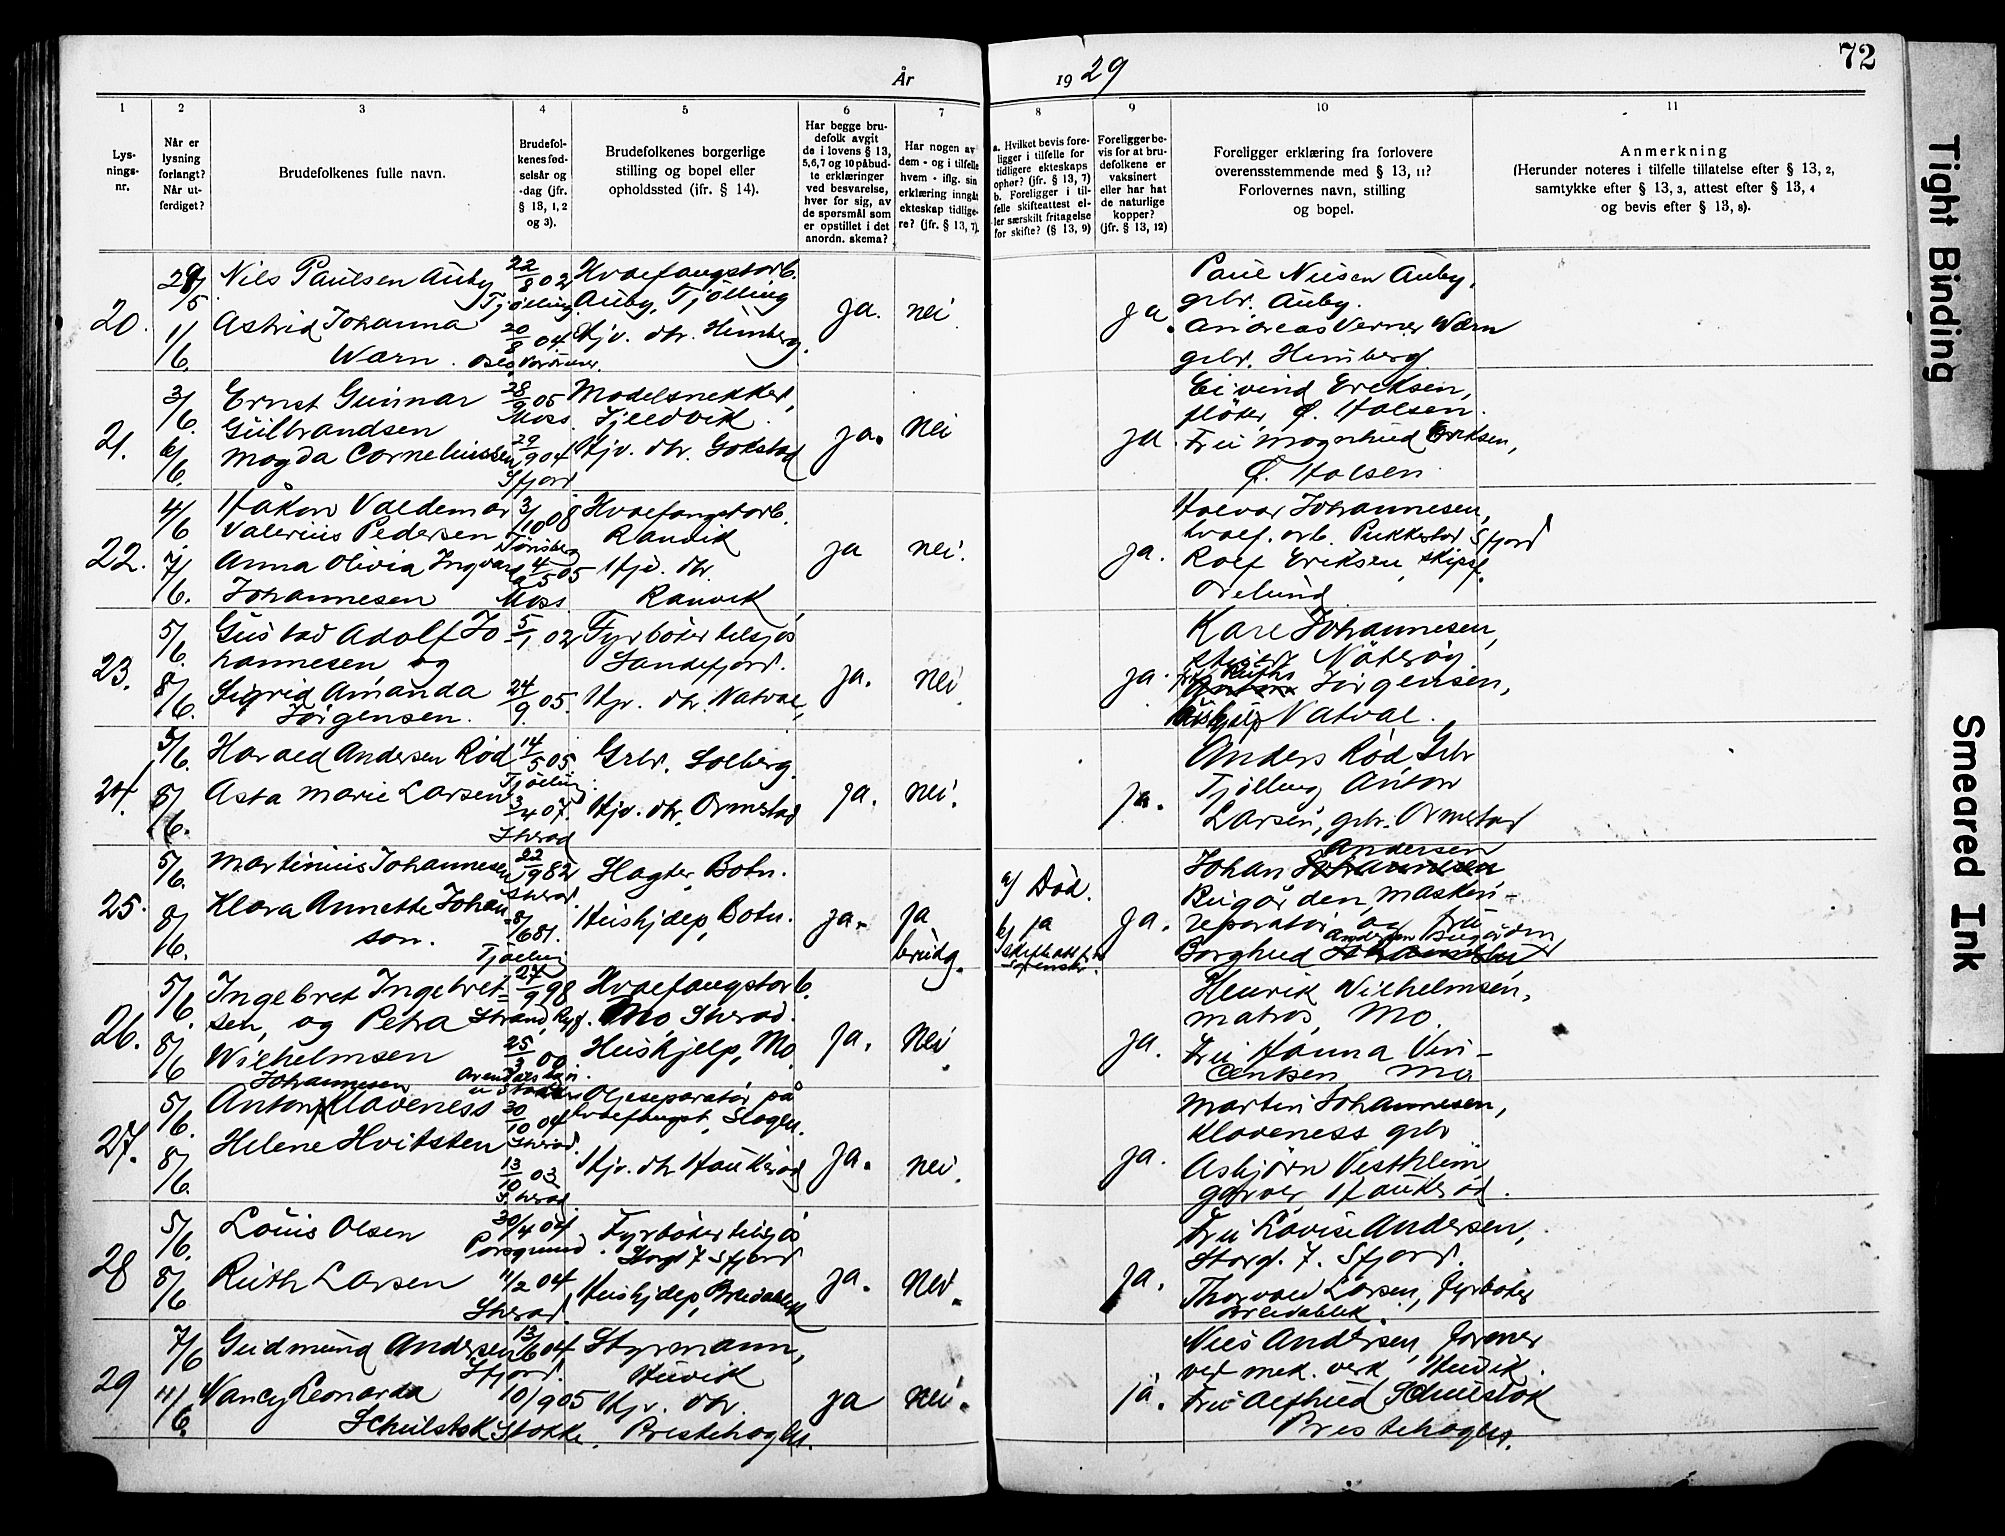 År
19 29
72
1
2
3
4
5
6
7
8
9
10
11
Lys-
nings-
nr.
Når er
lysning
forlangt?
Når ut-
ferdiget?
Brudefolkenes fulle navn.
Brudefol-
kenes fød-
selsår og
-dag (jfr.
§ 13, 1, 2
og 3).
Brudefolkenes borgerlige
stilling og bopel eller
opholdssted (ifr. § 14).
Har begge bru-
defolk avgit
de i lovens § 13,
5,6,7 og 10 påbud-
te erklæringer
ved besvarelse,
hver for sig, av
de spørsmål som
er opstillet i det
anordn. skema?
Har nogen av
dem - og i tilfelle
hvem - iflg. sin
erklæring inngått
ekteskap tidlige-
re? (jfr. § 13, 7).
a. Hvilket bevis fore-
ligger i tilfelle for
tidligere ekteskaps
ophør? (jfr. § 13, 7)
b. Foreligger i til-
felle skifteattest el-
ler særskilt fritagelse
for skifte? (§ 13, 9)
Foreligger be-
vis for at bru-
defolkene er
vaksinert
eller har hat
de naturlige
kopper?
(jfr. § 13, 12)
Foreligger erklæring fra forlovere
overensstemmende med § 13, 11?
Forlovernes navn, stilling
og bopel.
Anmerkning
(Herunder noteres i tilfelle tillatelse efter § 13, 2,
samtykke efter § 13, 3, attest efter § 13, 4
og bevis efter § 13, 8).
20.
29/5
1/6.
Nils Paulsen Auby 22/8 02
Tjølling
Astrid Johanna 20/8 04
Warn. Oslo
Hvalfangstarb.
Auby, Tjølling
Hjv. dtr. Himberg.
ja.
nei
ja.
Paul Nilsen Auby,
grbr. Auby.
Andreas Verner Warn
grbr. Himberg
21.
3/6.
6/6.
Ernst Gunnar 28/9 05
Gulbrandsen Moss
Magda Corneliussen 29/9 04
Sfjord
Modelsnekker,
Fjeldvik.
Hjv. dtr. Gokstad
ja.
nei
ja.
Eivind Eriksen,
fløter, Ø. Halsen.
Fru Magnhild Eriksen,
Ø. Halsen
22.
4/6
7/6.
Håkon Valdemar 3/10 08
Valerius Pedersen Tønsberg
Anna Olivia Ingvarda 4/5 05
Johannesen Moss
Hvalfangstarb.
Ranvik
Hjv. dtr.
Ranvik
ja
nei.
ja.
Halvor Johannesen,
hvalf. arb. Pukkestad Sfjord
Rolf Eriksen, skipsf.
Ørelund
23.
5/6.
8/6.
Gustav Adolf Jo 5/1 02
hannesen og
Sigrid Amanda 24/9 05.
Jørgensen.
Fyrbøter tilsjøs
Sandefjord.
Hjv. dtr. Natval,
ja.
nei
ja.
Karl Johannesen,
Nøterøy.
Ruths
Jørgensen,
Hushjelp Natval.
24.
5/6.
8/6.
Harald Andersen Rød 14/5 05
Tjølling
Asta Marie Larsen 3/4 07.
Sherad
Grbr. Solberg.
Hjv. dtr. Ormestad
ja.
nei.
ja.
Anders Rød, Grbr
Tjølling Anton
Larsen, grbr. Ormestad
25.
5/6.
8/6.
Martinius Johannesen 22/9 82
Sherad.
Klara Annette Johan- 8/6 81.
son. Tjølling
Slagter, Botn.
Hushjelp, Botn.
ja.
ja
brudg.
a) Død.
b) ja
ja.
Andersen
Johan
Bugården, maskin-
reparatør og fru
Andersen Bugården
Borghild
26.
5/6.
8/6
Ingebret Ingebret- 24/9 98
sen, og Petra Strand, Ryf.
Wilhelmsen 25/2 00
Hvalfangstarb.
Mo, Sherad.
Hushjelp, Mo
ja.
nei
ja.
Henrik Wilhelmsen,
matros, Mo.
Fru Hanna Vin-
centsen, Mo
27.
5/6.
8/6.
Johannesen
Anton Klaveness 30/10 04
Sherad.
Helene Hvitsten 13/10 03
Sherad.
Oljeseparatør på
hvalfangst, Slagen.
Hjv. dtr Haukerød
ja.
nei.
ja.
Martin Johannesen,
Klaveness grbr
Asbjørn Vestheim
garver, Haukerød.
28
5/6.
8/6
Louis Olsen 30/4 04
Porsgrund
Ruth Larsen 11/2 04
Sherad.
Fyrbøter tilsjøs
Storgt 7 Sfjord
Hushjelp, Breidablikk
ja.
nei.
ja.
Fru Lovise Andersen,
Storgt. 7. Sfjord.
Thorvald Larsen, fyrbøter
Breidablik
29
7/6
11/6.
Gudmund Andersen 13/6 04
Sfjord.
Nancy Leonarda 10/9 05
Schulstok Stokke.
Styrmann,
Huvik
Hjv. dtr.
Prestehagen.
ja
nei.
ja.
Nils Andersen, former
ved mek. verk, Huvik.
Fru Alfhild Schulstok
Prestehagen.
Tight Binding
Smeared Ink